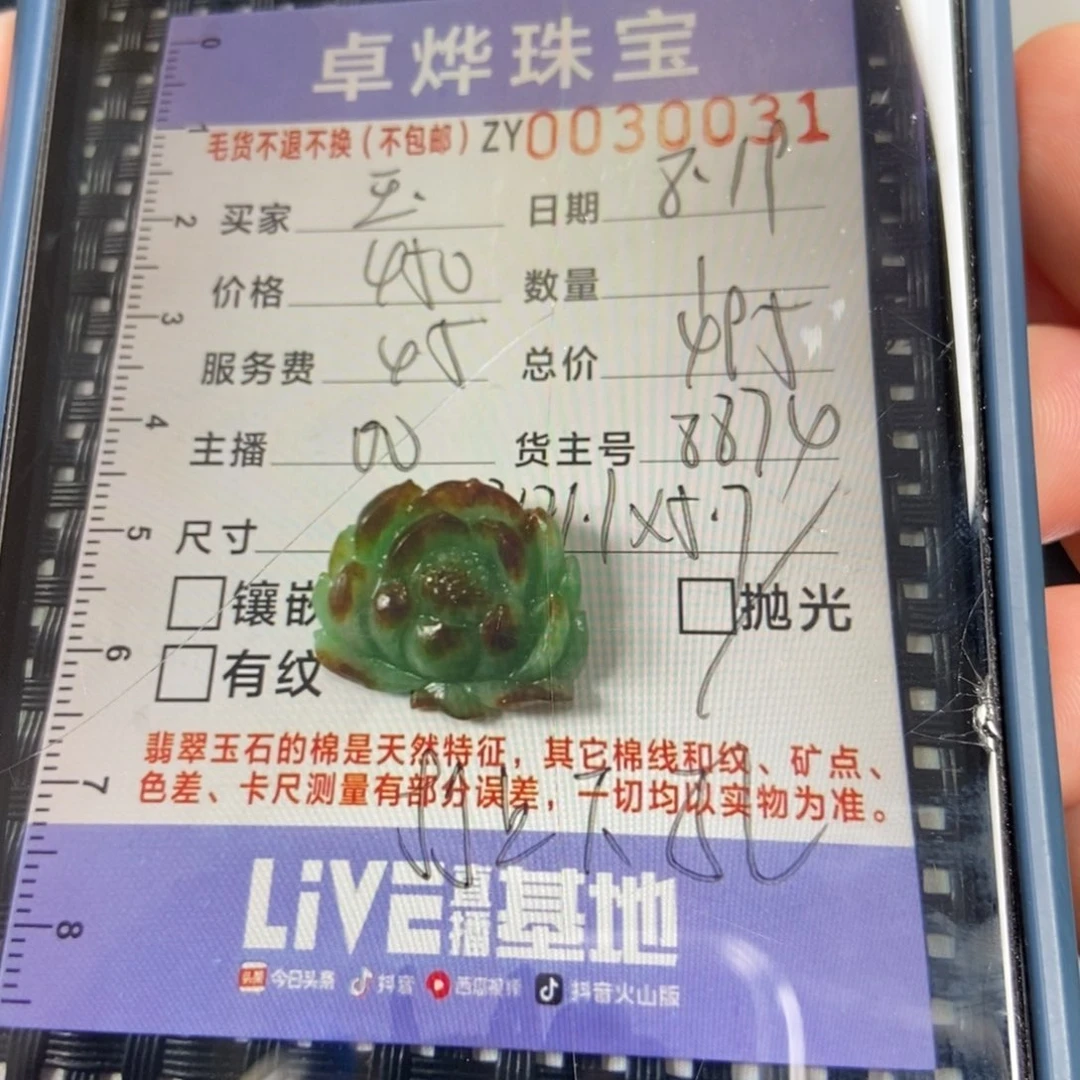 卓烨珠宝
毛货不退不换（不包邮）ZY0030031
买家 王. 日期 8.19
价格 450 数量 1
服务费 45 总价 495
主播 00 货主号 8876
尺寸 21.1x5.7
镶嵌 抛光
有纹
翡翠玉石的棉是天然特征，其它棉线和纹、矿点、
色差、卡尺测量有部分误差，一切均以实物为准。
LiVE直播基地
头条 今日头条 抖音 西瓜视频 抖音火山版
0
1
2
3
4
5
6
7
8